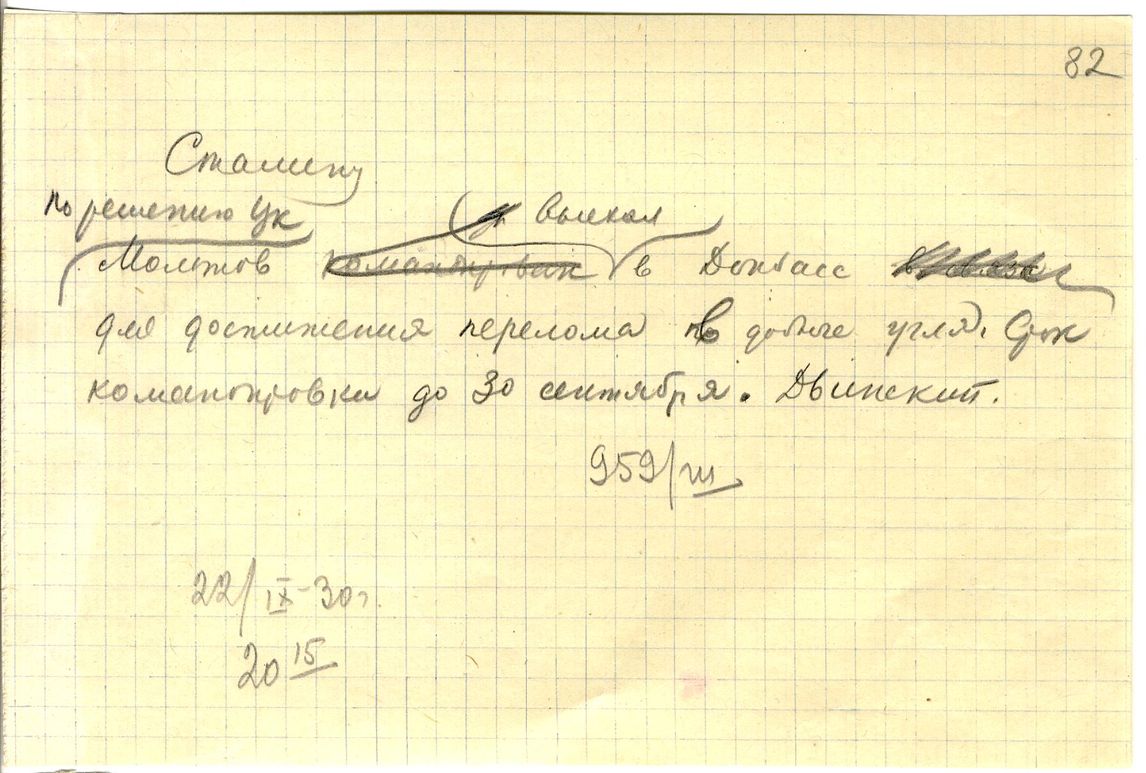 82
Сталину
По решению ЦК
выехал
Молотов командирован в Донбасс
для достижения перелома в добыче угля. Срок
командировки до 30 сентября. Двинский.
959/ш
22/IX-30г.
20 15